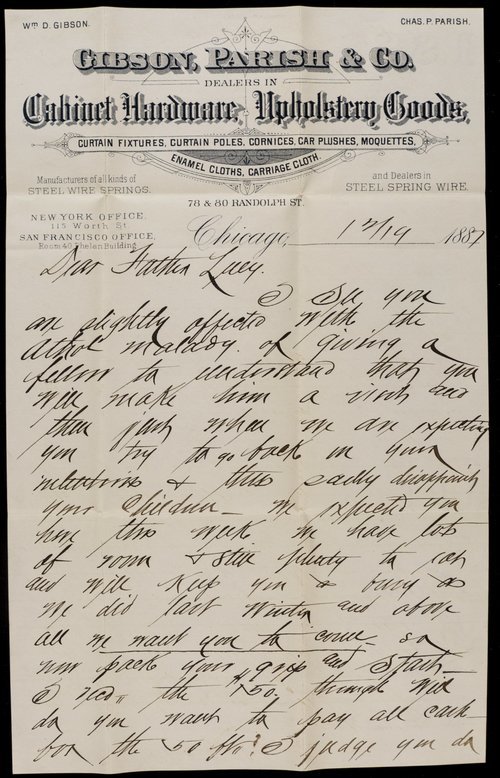 Wm D. GIBSON.
CHAS. P. PARISH.
GIBSON, PARISH & CO.
DEALERS IN
Cabinet Hardware, Upholstery Goods,
CURTAIN FIXTURES, CURTAIN POLES, CORNICES, CAR PLUSHES, MOQUETTES,
ENAMEL CLOTHS, CARRIAGE CLOTH.
Manufacturers of all kinds of
STEEL WIRE SPRINGS.
and Dealers in
STEEL SPRING WIRE.
78 & 80 RANDOLPH ST.
NEW YORK OFFICE,
115 Worth St
SAN FRANCISCO OFFICE,
Room 40 Phelan Building
Chicago, 12/19 1887
Dear Father Lucy.
I see you
are slightly affected with the
Athol malady of giving a
fellow to understand that you
will make him a visit and
then just when we are expecting
you try to go back in your
intentions & thus sadly disappoint
your Children – we expected you
here this week we have lots
of room & still plenty to eat
and will keep you as busy as
we did last winter and above
all we want you to come so
now pack your grip and start
I rec'd the $50. through Will
do you want to pay all cash
for the 50 I judge you do